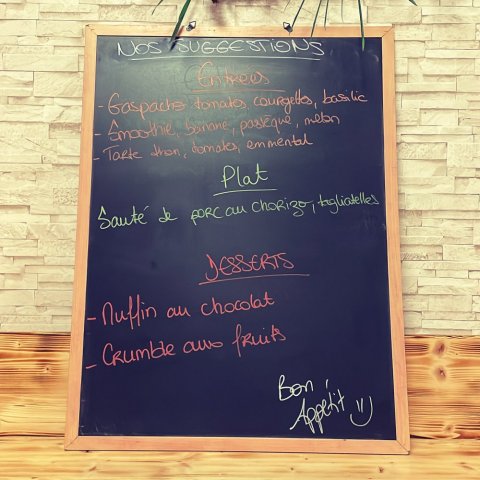 NOS SUGGESTIONS
Entrées
- Gaspacho tomates, courgettes, basilic
- Smoothie, banane, pastèque, melon
- Tarte thon, tomates, emmental
Plat
Sauté de porc au chorizo, tagliatelles
DESSERTS
- Muffin au chocolat
- Crumble aux fruits
Bon
Appétit =)